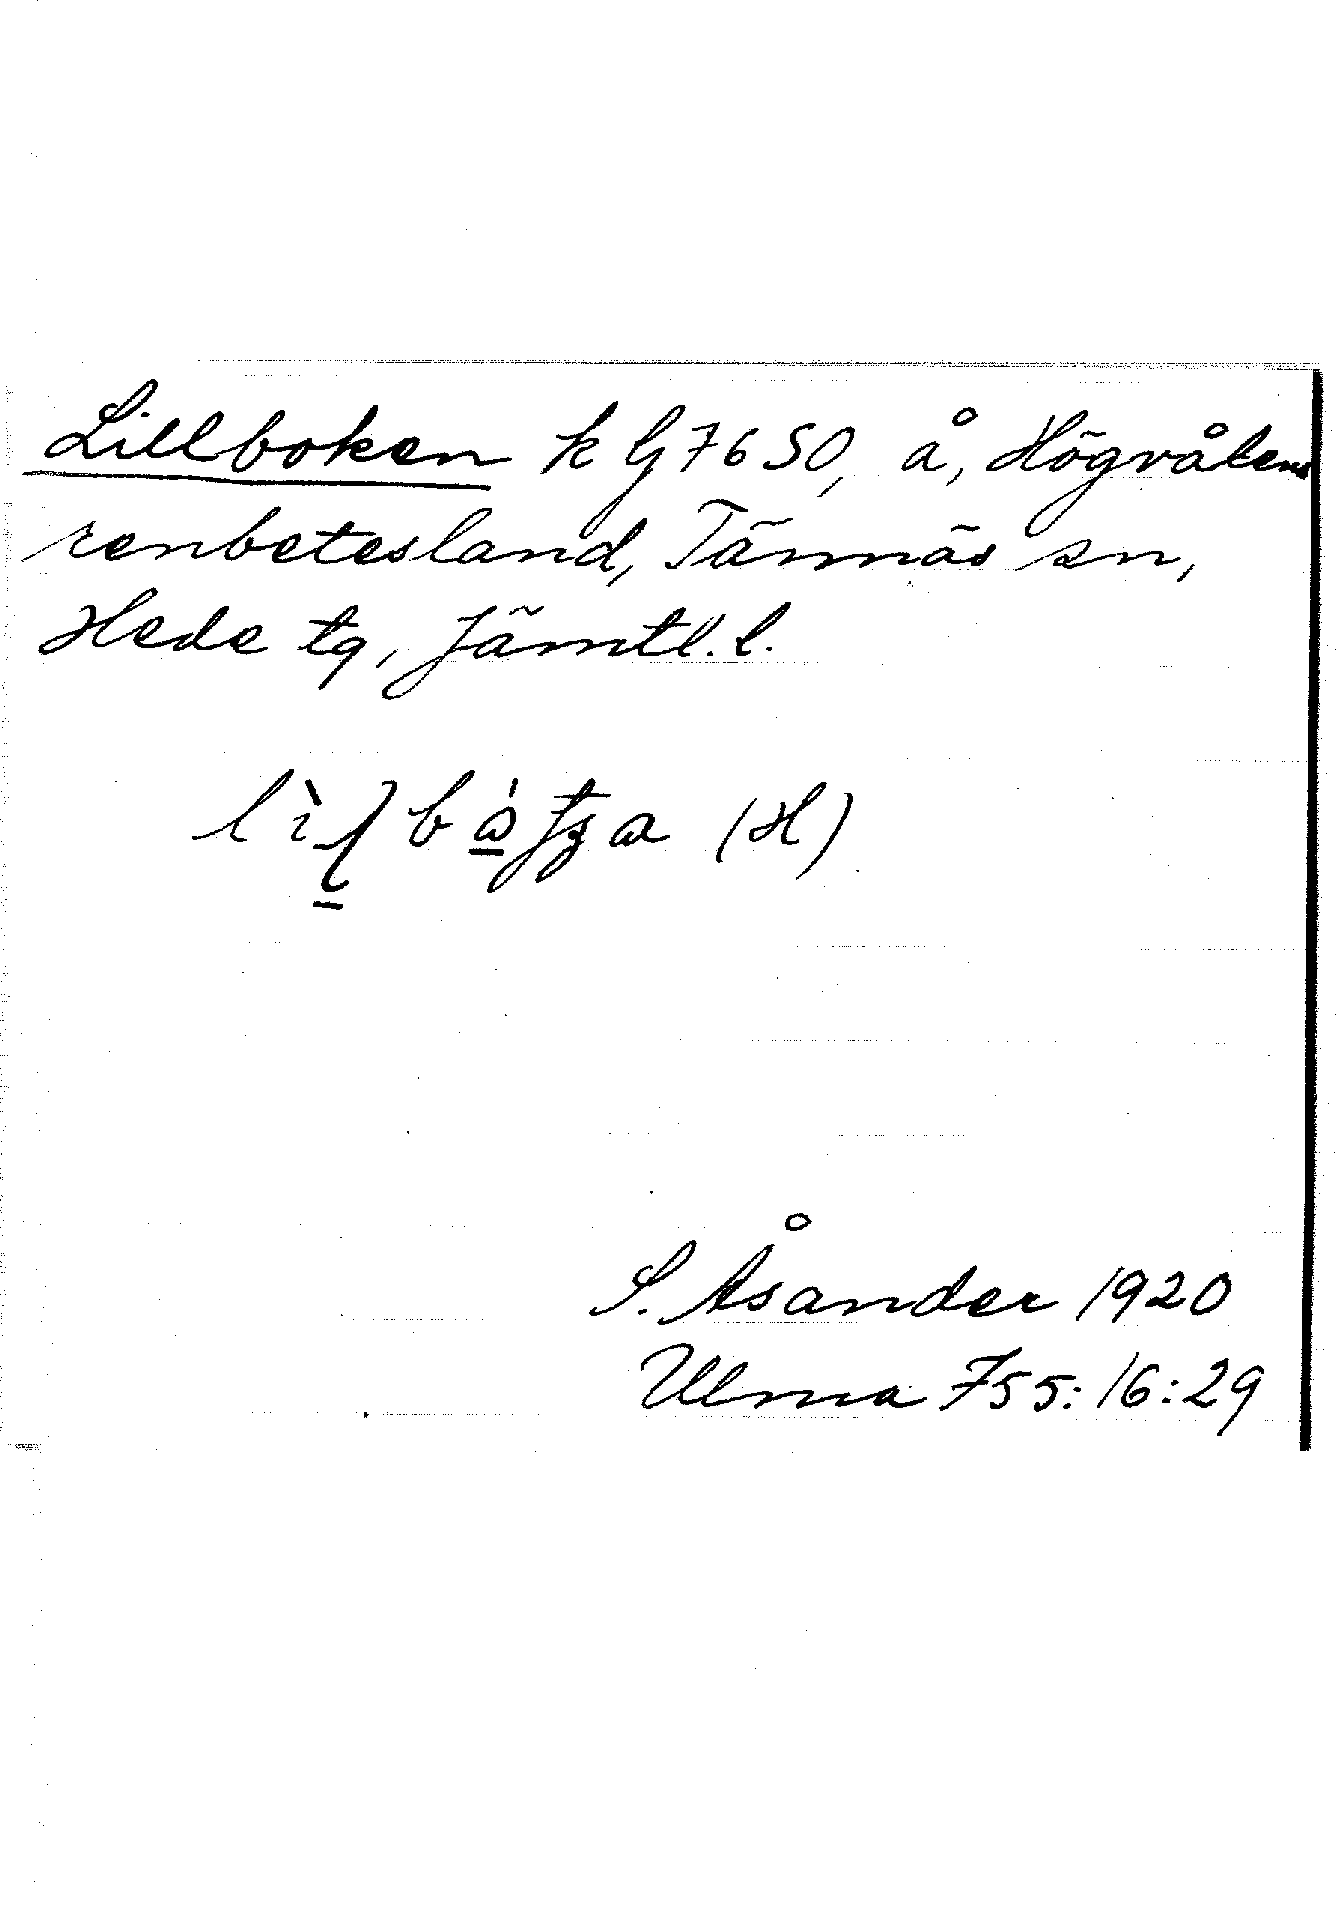 Lillboken k G 76 SO, å, Högvålens
renbetesland, Tännäs sn,
Hede tg, Jämtl. l.
(H)
S. Åsander 1920
Ulma 755:16:29